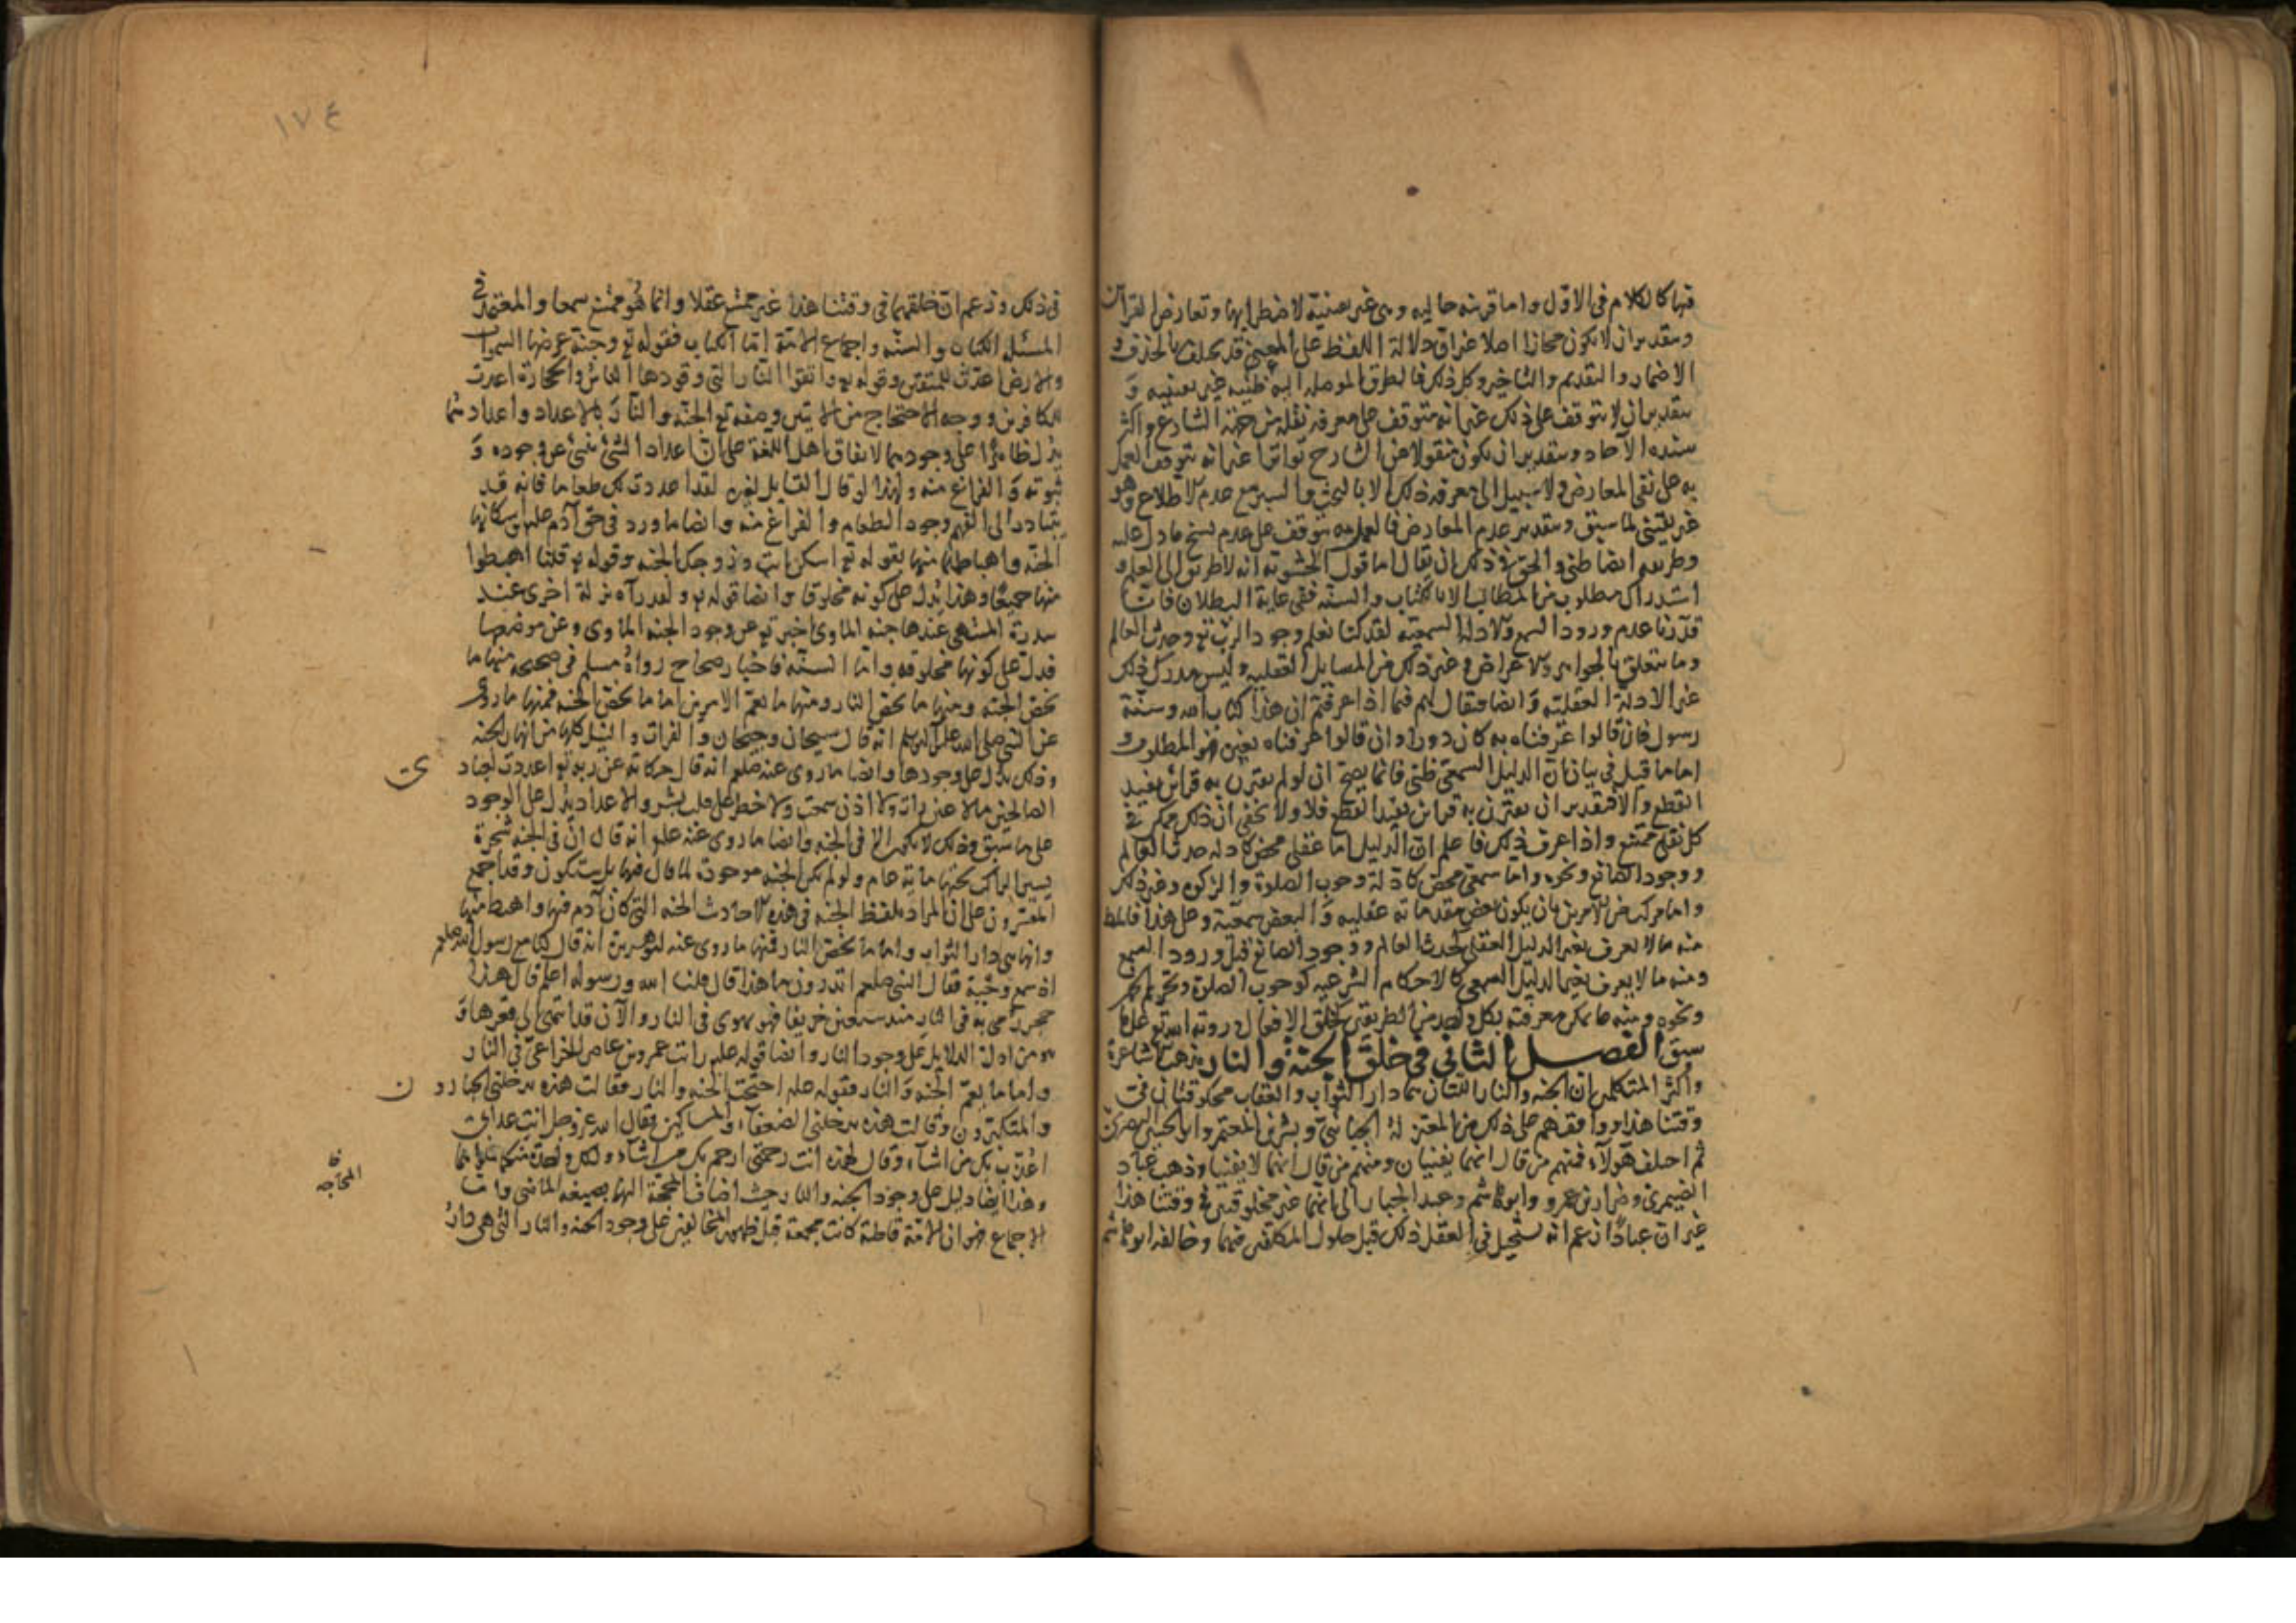 فيها كالكلام في الاول واما قرينه حاليه وهي غير يعنيه لاضطرابها وتعارض القرائن
وبتقدير ان لا يكون مجازا اصلا غير ان دلالة اللفظ على المعنى قد تختلف بالحذف و
الاضمار والتقديم والتاخير وكل ذلك فالطرق الموصله اليه ظنيه غير يعينيه و
بتقدير ان لا يتوقف على ذلك غير انه متوقف على معرفة نقله من جهة الشارع واكثر
سنده الآحاد وبتقدير ان يكون منقولا عن الشارع تواترا غير انه يتوقف العمل
به على نفي المعارض ولا سبيل الى معرفة ذلك الا بالبحث والسبر مع عدم الاطلاع وهو
غير يقيني لما سبق وبتقدير عدم المعارض فالعمل به يتوقف على عدم نسخ ما دل عليه
وطريقه ايضا ظني والحق في ذلك ان يقال اما قول الحشوية انه لا طريق الى العلم و
استدراك مطلوب من المطالب الا بالكتاب والسنه ففي غاية البطلان فانا
قدرنا عدم ورود السمع والادلة السمعيه لقد كنا نعلم وجود الرب تع وحدث العالم
وما يتعلق بالجواهر والاعراض وغير ذلك من المسايل العقليه وليس مدرك ذلك
غير الادلة العقليه وايضا فيقال لهم فيما اذا عرفتم ان هذا كتاب الله وسنة
رسوله فان قالوا عرفناه به كان دورا وان قالوا عرفناه بغيره فهو المطلوب و
اما ما قيل في بيان ان الدليل السمعي ظني فانما يصح ان لو لم يقترن به قرائن مفيد
القطع والا فبتقدير ان يقترن به قرائن تفيد القطع فلا ولا يخفى ان ذلك ممكن في
كل نقلي ممتنع واذا عرف ذلك فاعلم ان الدليل اما عقلي محض كادلة حدث العالم
ووجود الصانع ونحوه واما سمعي محض كادلة وجوب الصلوة والزكوة وغير ذلك
واما مركب من الامرين بان يكون بعض مقدماته عقليه والبعض سمعية وعلى هذا فالمط
منه ما لا يعرف بغير الدليل العقلي كحدث العالم ووجود الصانع قبل ورود السمع
ومنه ما لا يعرف بغير الدليل السمعي كالاحكام الشرعيه كوجوب الصلوة وتحريم الخمر
ونحوه ومنه ما يمكن معرفته بكل واحد من الطريقين كخلق الافعال ورويه الله تع على ما
سبق الفصل الثاني في خلق الجنة والنار مذهب الاشاعرة
واكثر المتكلمين ان الجنه والنار اللتان هما دار الثواب والعقاب مخلوقتان في
وقتنا هذا ووافقهم على ذلك من المعتزلة الجبائي وبشر بن المعتمر وابو الحسين البصري
ثم اختلف هؤلاء فمنهم من قال انهما يفنيان ومنهم من قال انهما لا يفنيا وذهب عباد
الضيمري وضرار بن عمرو وابو هاشم وعبد الجبار الى انهما غير مخلوقتين في وقتنا هذا
غير ان عبادا زعم انه يستحيل في العقل ذلك قبل حلول المكلفين فيهما وخالفه ابو هاشم
١٧٤
في ذلك وزعم ان خلقهما في وقتنا هذا غير ممتنع عقلا وانما هو ممتنع سمعا والمعتمد في
المسئلة الكتاب والسنه واجماع الامة اما الكتاب فقوله تع وجنة عرضها السموات
والارض اعدت للمتقين وقوله تع واتقوا النار التي وقودها الناس والحجارة اعدت
للكافرين ووجه الاحتجاج من الايتين وصفه تع الجنة والنار بالاعداد واعدادهما
يدل ظاهرا على وجودهما لاتفاق اهل اللغة على ان اعداد الشئ ينبئ عن وجوده و
ثبوته والفراغ منه ولهذا لو قال القايل لغيره لقد اعددت لك طعاما فانه قد
يتبادر الى الفهم وجود الطعام والفراغ منه وايضا ما ورد في حق آدم عليه واسكانها
الجنة واهباطهما منها بقوله تع اسكن انت وزوجك الجنة وقوله تع قلنا اهبطوا
منها جميعا وهذا يدل على كونه مخلوقا وايضا قوله تع ولقد رآه نزلة اخرى عند
سدرة المنتهى عندها جنة الماوى اخبر تع عن وجود الجنة الماوى وعن موضعها
فدل على كونها مخلوقه واما السنه فاخبار صحاح رواه مسلم في صحيحه منها ما
يخص الجنة ومنها ما يخص النار ومنها ما يعم الامرين اما ما يخص الجنه فمنها ما روى
عن النبي صلى الله عليه وآله وسلم انه قال سيحان وجيحان والفرات والنيل كلها من انهار الجنه
وذلك يدل على وجودها وايضا ما روى عنه صلعم انه قال حكاية عن ربه تع اعددت لعباد ى
الصالحين ما لا عين رات ولا اذن سمعت ولا خطر على قلب بشر والاعداد يدل على الوجود
على ما سبق وذلك لا يكون الا في الجنه وايضا ما روى عنه علم انه قال ان في الجنة شجرة
يسير الراكب تحتها ماية عام ولو لم يكن الجنة موجودة لما قال فيها بل ستكون وقد اجمع
المفسرون على ان المراد بلفظ الجنه في هذه الاحاديث الجنه التي كان آدم فيها واهبط منها
وانها هي دار الثواب واما ما يخص النار فمنها ما روى عنه ابو هريرة انه قال كنا مع رسول الله صلعم
اذ سمع وجبة فقال النبي صلعم اتدرون ما هذا قال قلنا الله ورسوله اعلم قال هذا
حجر رمي به في النار منذ سبعين خريفا فهو يهوي في النار والآن قد انتهى الى قعرها و
هو من ادل الدلايل على وجود النار وايضا قوله عليه رايت عمرو بن عامر الخزاعي في النار
واما ما يعم الجنة والنار فقوله عليه احتجت الجنة والنار فقالت هذه يدخلني الجبارو ن
والمتكبرون وقالت هذه يدخلني الضعفاء والمساكين فقال الله عز وجل انت عذابي
اعذب بك من اشاء وقال لهذه انت رحمتي ارحم بك من اشاء ولكل واحدة منكما ملوها
وهذا ايضا دليل على وجود الجنه والنار حيث اضاف المحجة اليهما بصيغة الماضي واما
المحاجه
الاجماع فهو ان الامة قاطبة كانت مجمعة قبل ظهور المخالفين على وجود الجنه والنار التي هي دار